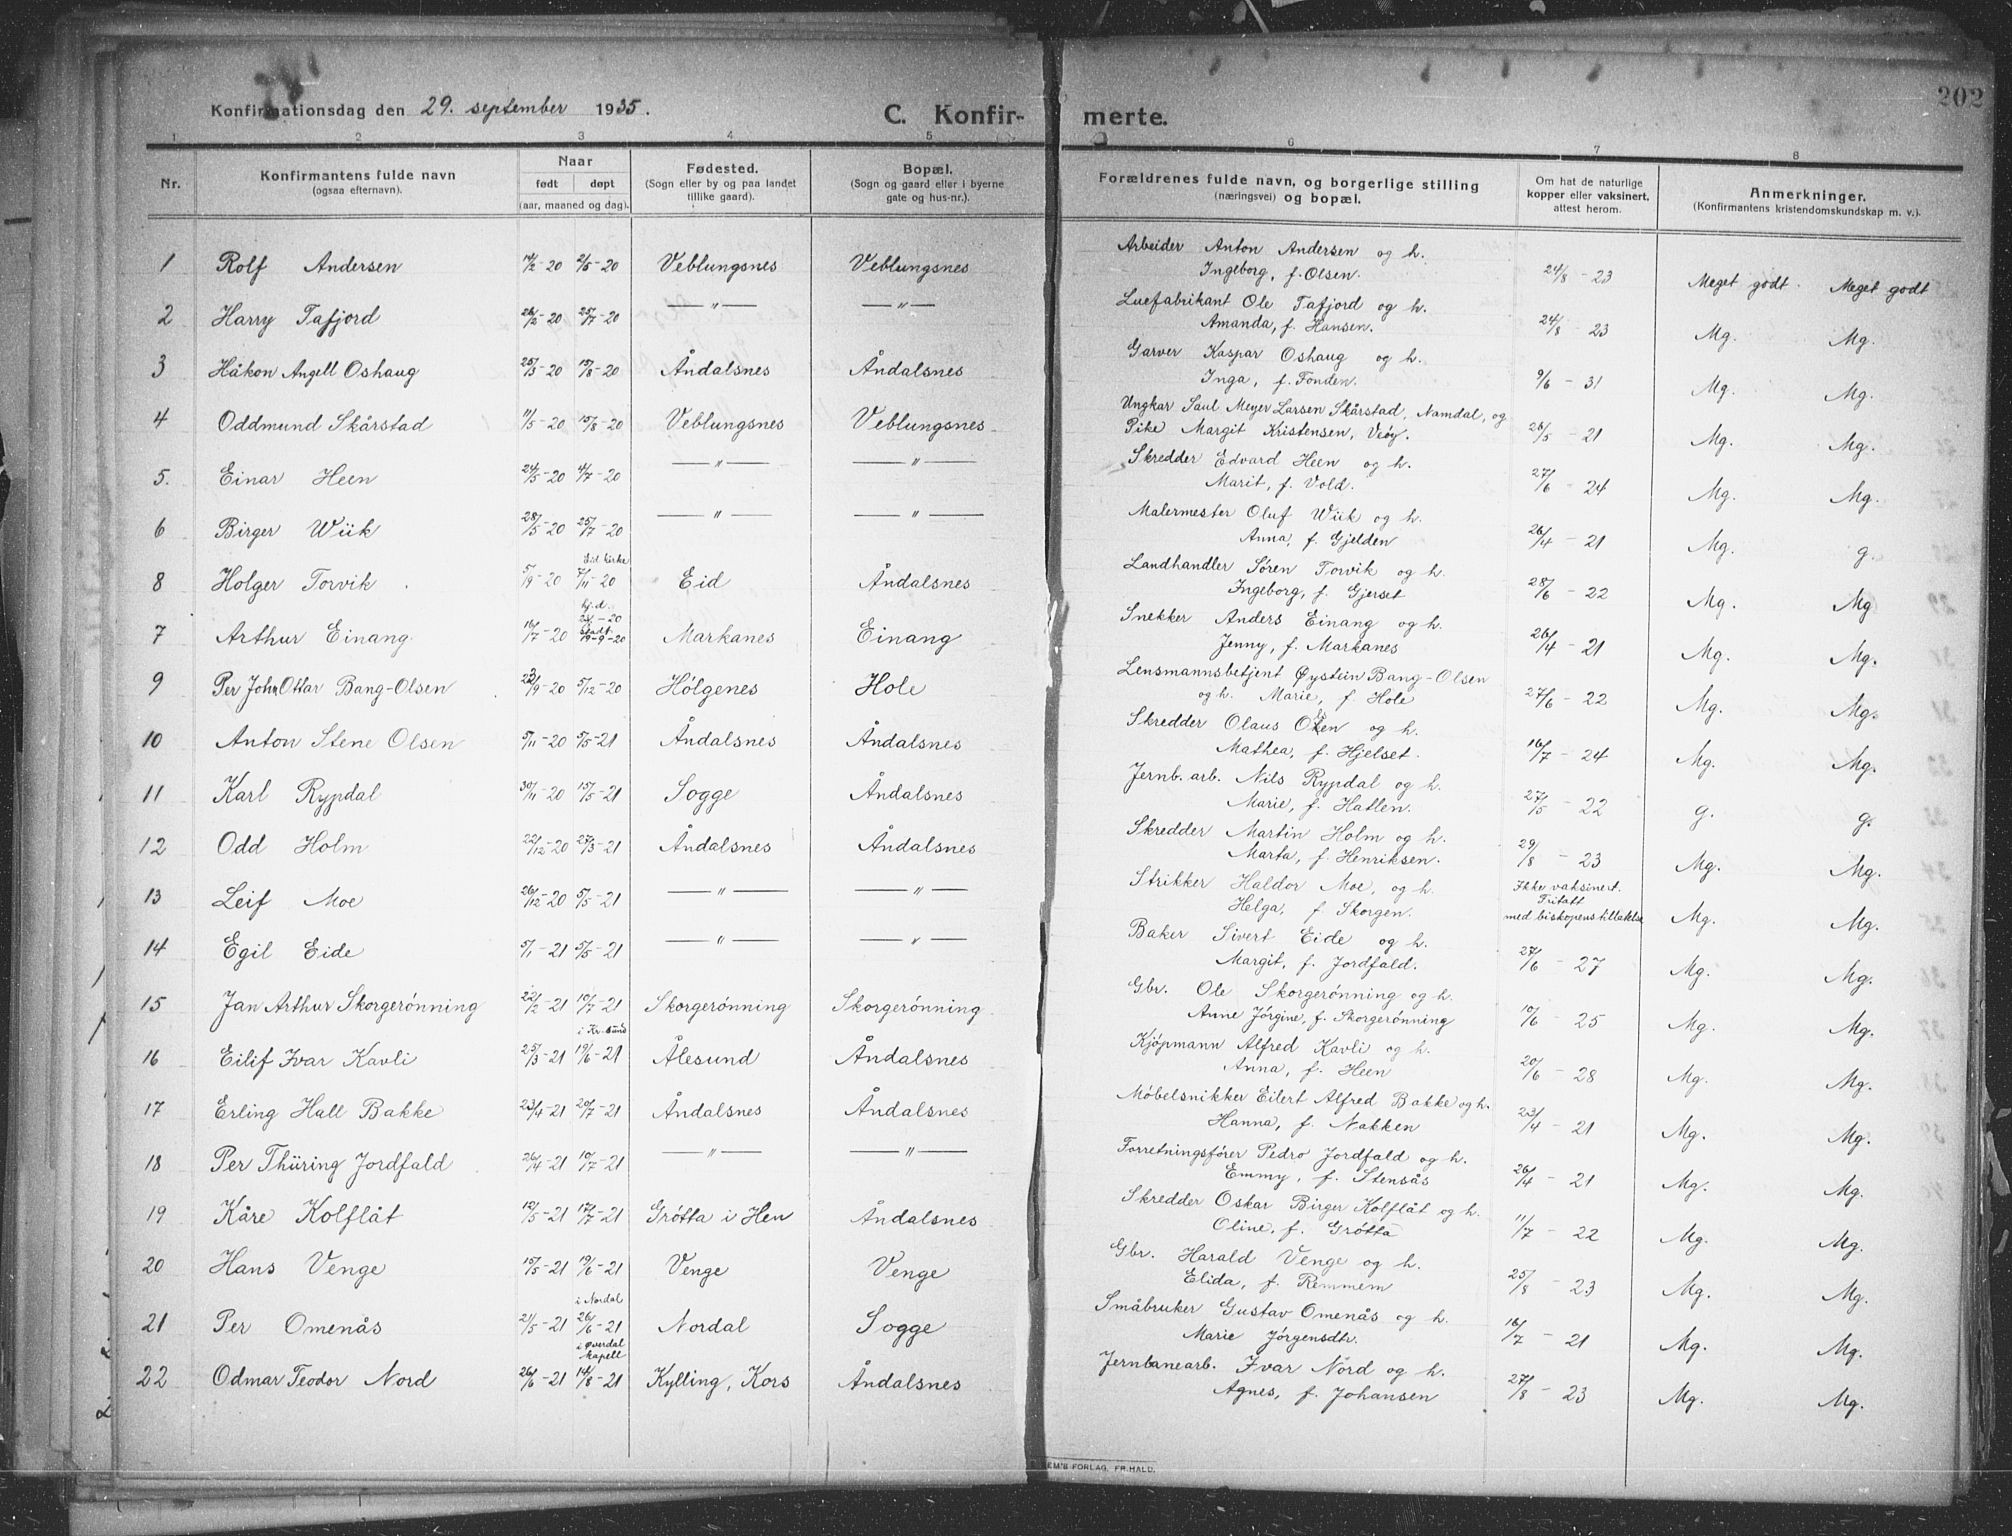 202
Konfirmationsdag den 29. september 1935. C. Konfir- merte.
1 2 3 4 5 6 7 8
Nr. Konfirmantens fulde navn (ogsaa efternavn). Naar født døpt (aar, maaned og dag). Fødested. (Sogn eller by og paa landet tillike gaard). Bopæl. (Sogn og gaard eller i byerne gate og hus-nr.). Forældrenes fulde navn, og borgerlige stilling (næringsvei) og bopæl. Om hat de naturlige kopper eller vaksinert, attest herom. Anmerkninger. (Konfirmantens kristendomskundskap m. v.).
1 Rolf Andersen 14/2-20 2/5-20 Veblungsnes Veblungsnes Arbeider Anton Andersen og h.
Ingeborg, f. Olsen. 24/8-23 Meget godt. Meget godt
2 Harry Tafjord 26/2-20 25/7-20 —"— —"— Luefabrikant Ole Tafjord og h.
Amanda, f. Hansen. 24/8-23 Mg. Mg.
3 Håkon Angell Oshaug 25/3-20 15/8-20 Åndalsnes Åndalsnes Garver Kaspar Oshaug og h.
Inga, f. Fonden. 9/6-31 Mg. Mg.
4 Oddmund Skårstad 11/5-20 15/8-20 Veblungsnes Veblungsnes Ungkar Saul Meyer Larsen Skårstad, Namdal, og
Pike Margit Kristensen, Veøy. 28/5-21 Mg. Mg.
5. Einar Heen 24/5-20 4/7-20 —"— —"— Skredder Edvard Heen og h.
Marit, f. Vold. 27/6-24 Mg. Mg.
6 Birger Wiik 28/5-20 25/7-20 —"— —"— Malermester Oluf Wiik og h.
Anna, f. Gjelden 26/4-21 Mg. g.
Eid kirke
8 Holger Torvik 5/9-20 7/11-20 Eid Åndalsnes Landhandler Søren Torvik og h.
Ingeborg, f. Gjerset 28/6-22 Mg. Mg
hj.d.
7 Arthur Einang 16/7-20 stadf. 19-9-20 Markanes Einang Snekker Anders Einang og h.
Jenny, f. Markanes 26/4-21 Mg. Mg.
9 Per John Ottar Bang-Olsen 23/9-20 5/12-20 Hølgenes Hole Lensmannsbetjent Øystein Bang-Olsen
og h. Marie, f. Hole 27/6-22 Mg. Mg.
10 Anton Stene Olsen 5/11-20 5/5-21 Åndalsnes Åndalsnes Skredder Olaus Olsen og h.
Mathea, f. Hjelset. 16/7-24 Mg. Mg.
11 Karl Rypdal 30/11-20 15/5-21 Sogge Åndalsnes Jernb. arb. Nils Rypdal og h.
Marie, f. Hatlen. 27/5-22 g. g.
12 Odd Holm 22/12-20 27/3-21 Åndalsnes Åndalsnes Skredder Martin Holm og h.
Marta, f. Henriksen. 29/8-23 Mg. Mg.
13 Leif Moe 26/12-20 5/5-21 —"— —"— Strikker Haldor Moe, og h.
Helga, f. Skorgen. Ikke vaksinert. Fritatt
med biskopens tillatelse Mg. Mg.
14 Egil Eide 5/1-21 5/5-21 —"— —"— Baker Sivert Eide og h.
Margit, f. Jordfald. 27/6-27 Mg. Mg.
15 Jan Arthur Skorgerønning 22/2-21 10/7-21 Skorgerønning Skorgerønning Gbr. Ole Skorgerønning og h.
Anne Jørgine, f. Skorgerønning 10/6-25 Mg. Mg.
i Kr.sund
16 Eilif Ivar Kavli 25/3-21 19/6-21 Ålesund Åndalsnes Kjøpmann Alfred Kavli og h.
Anna, f. Heen 20/6-28 Mg. Mg.
17 Erling Hall Bakke 23/4-21 20/7-21 Åndalsnes Åndalsnes Møbelsnikker Eilert Alfred Bakke og h.
Hanna, f. Nakken 23/4-21 Mg. Mg.
18 Per Thüring Jordfald 26/4-21 10/7-21 —"— —"— Forretningsfører Pedro Jordfald og h.
Emmy, f. Stensås 26/4-21 Mg. Mg.
19 Kåre Kolflåt 12/5-21 17/7-21 Grøtta i Hen Åndalsnes Skredder Oskar Birger Kolflåt og h.
Oline, f. Grøtta 11/7-22 Mg. Mg.
20 Hans Venge 15/5-21 19/6-21 Venge Venge Gbr. Harald Venge og h.
Elida, f. Remmem 25/8-23 Mg. Mg.
i Nordal
21 Per Omenås 21/5-21 26/6-21 Nordal Sogge Småbruker Gustav Omenås og h.
Marie Jørgensdtr. 16/7-21 Mg. Mg.
i Øverdal kapell
22 Odmar Teodor Nord 26/6-21 14/8-21 Kylling, Kors Åndalsnes Jernbanearb. Ivar Nord og h.
Agnes, f. Johansen 27/8-23 Mg. Mg.
EM'S FORLAG. FR.HALD.